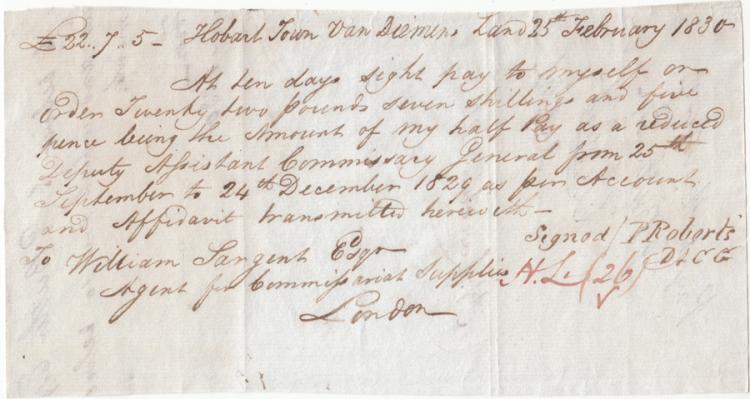 £22.. 7.. 5 - Hobart Town Van Diemens Land 25th February 1830
At ten days sight pay to myself or
order Twenty two pounds seven shillings and five
pence being the Amount of my half Pay as a reduced
Deputy Assistant Commissary General from 25th
September to 24th December 1829 as per Account
and Affidavit transmitted herewith -
Signed / P Roberts
D A C G
To William Sargent Esqr
Agent for Commissariat Supplies H.L. (26)
London